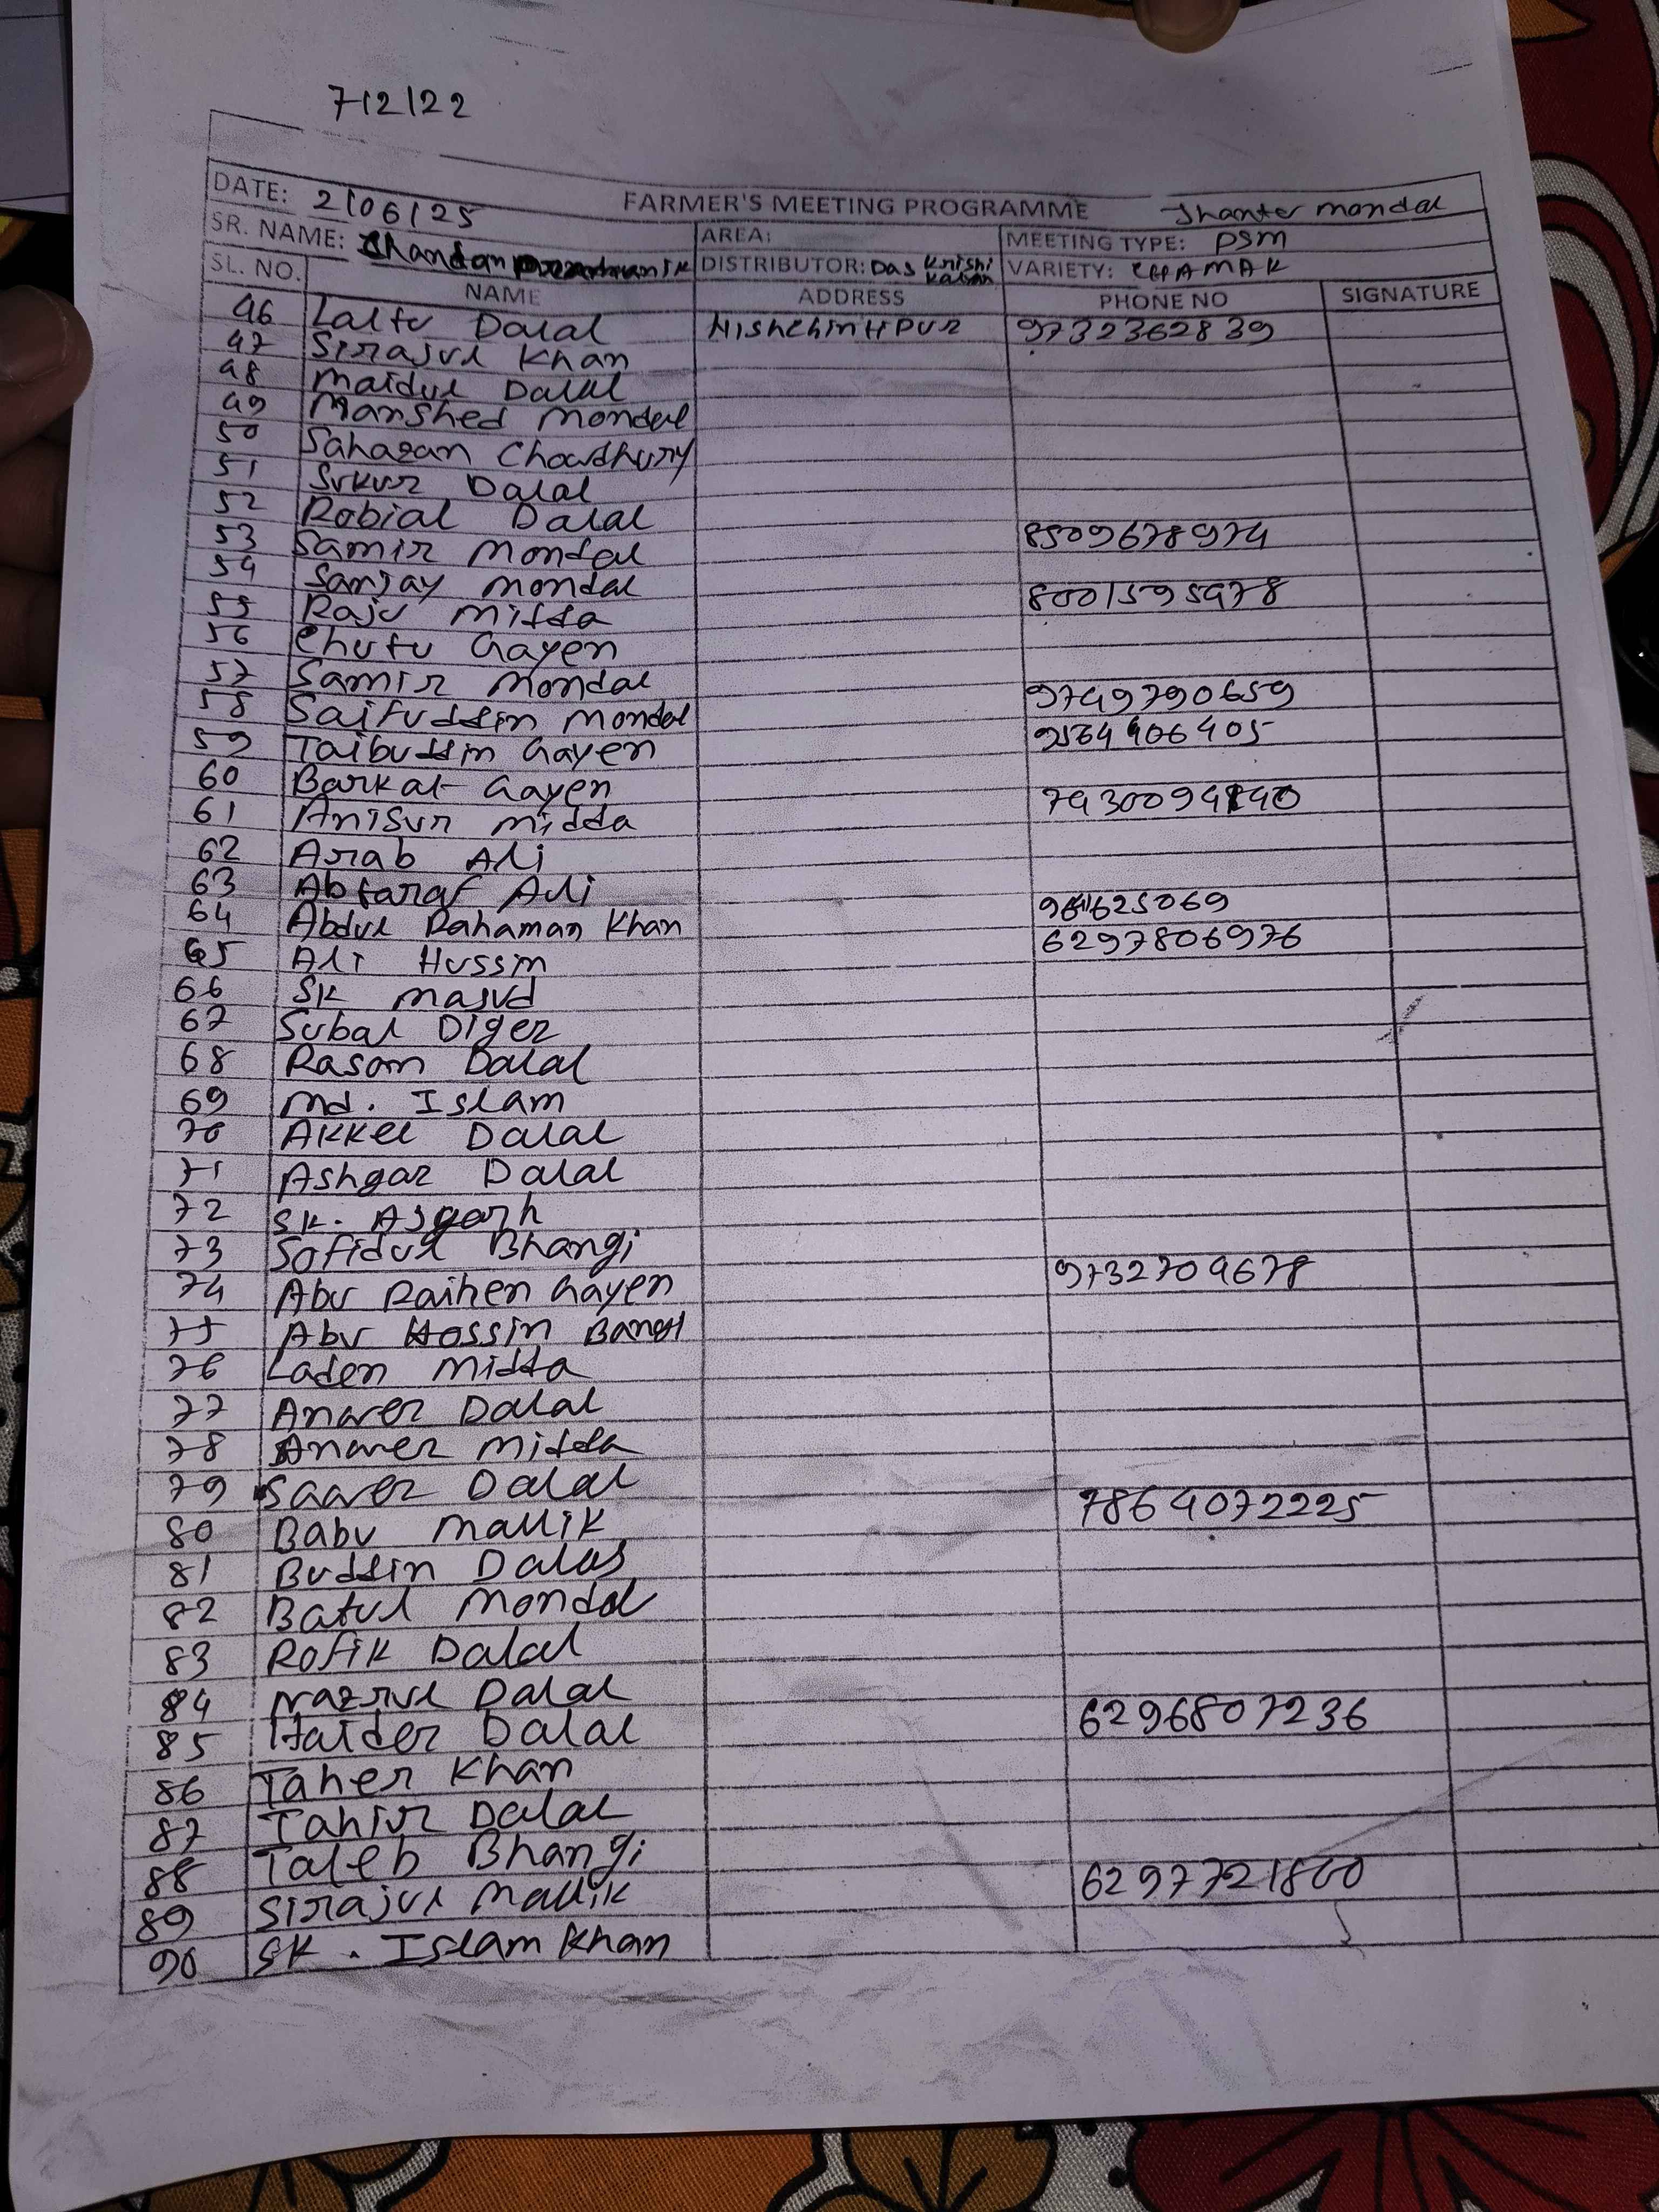 7/2/22
FARMER'S MEETING PROGRAMME Jhanter mondal
DATE: 2/06/25
SR. NAME: Chandan AREA: MEETING TYPE: PSM
DISTRIBUTOR: Das Krishi Kalyan VARIETY: CHAMAK
SL. NO. NAME ADDRESS PHONE NO SIGNATURE
46 Laltu Dalal Nishchintipur 9732362839
47 Sirajul Khan
48 Maidul Dalal
49 Manshed Mondal
50 Sahazan Chowdhury
51 Sukur Dalal
52 Robial Dalal
53 Samir Mondal 8509678974
54 Sanjay Mondal
55 Raju Midda 8001595978
56 Chutu Gayen
57 Samir Mondal
58 Saifuddin Mondal 9749790659
59 Taibuddin Gayen 9564406405
60 Barkat Gayen
61 Anisur Midda
62 Arab Ali
63 Abtaraf Ali
64 Abdul Rahaman Khan
65 Ali Hussin 6297806976
66 SK Masud
67 Subal Diger
68 Rasom Dalal
69 Md. Islam
70 Akkel Dalal
71 Ashgar Dalal
72 SK. Asgarh
73 Sofidul Bhangi
74 Abu Raihen Gayen 9732709678
75 Abu Hossin Bangi
76 Laden Midda
77 Anwer Dalal
78 Anwer Midda
79 Saarer Dalal
80 Babu Mallik 7864072225
81 Buddin Dalal
82 Batul Mondal
83 Rofik Dalal
84 Nazrul Dalal
85 Haider Dalal 6296807236
86 Taher Khan
87 Tahir Dalal
88 Taleb Bhangi
89 Sirajul Mallik 6297721800
90 SK. Islam Khan